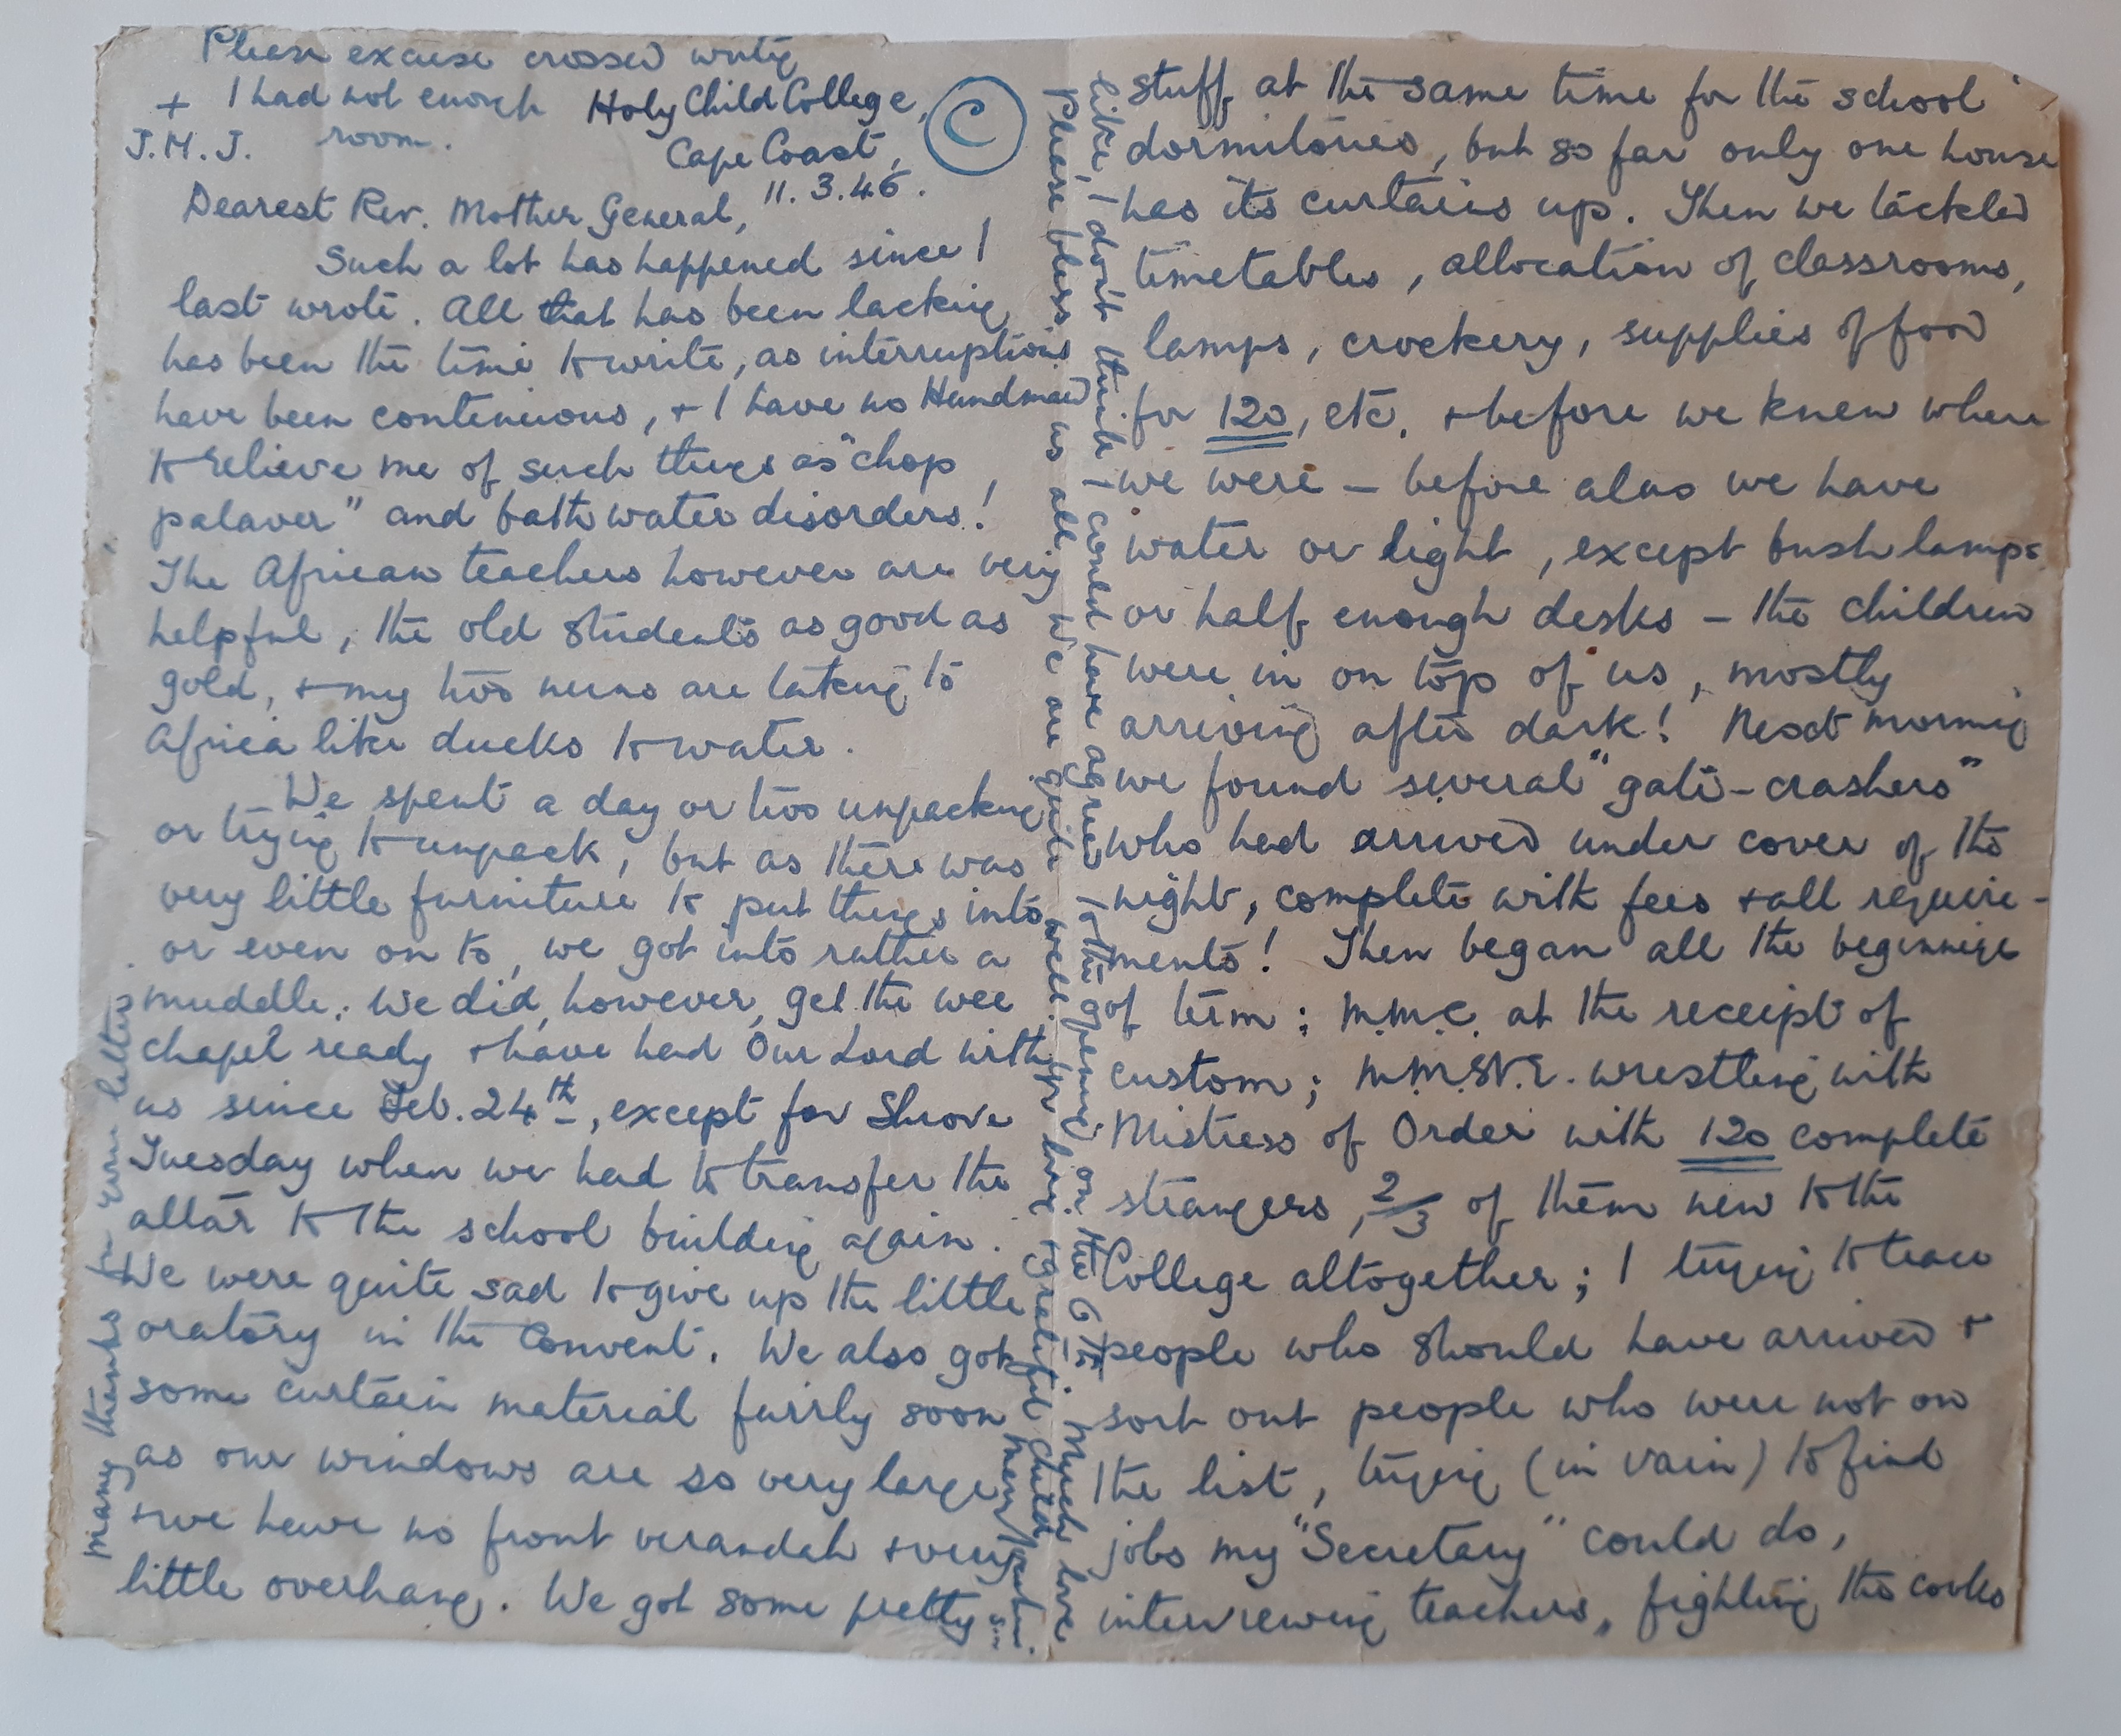 Please excuse crossed writing
+ I had not enough room.
J.M.J.
Holy Child College,
Cape Coast,
11.3.46.
©
Dearest Rev. Mother General,
Such a lot has happened since I
last wrote. All that has been lacking
has been the time to write, as interruptions
have been continuous, + I have no Handmaid
to relieve me of such things as "chop
palaver" and bath water disorders!
The African teachers however are very
helpful, the old students as good as
gold, + my two nuns are taking to
Africa like ducks to water.
We spent a day or two unpacking
or trying to unpack, but as there was
very little furniture to put things into
or even on to, we got into rather a
muddle. We did, however, get the wee
chapel ready + have had Our Lord with
us since Feb. 24th, except for Shrove
Tuesday when we had to transfer the
altar to the school building again.
We were quite sad to give up the little
oratory in the Convent. We also got
some curtain material fairly soon
as our windows are so very large
+ we have no front verandah + very
little overhang. We got some pretty
stuff at the same time for the school
dormitories, but so far only one house
has its curtains up. Then we tackled
timetables, allocation of classrooms,
lamps, crockery, supplies of food
for 120, etc. + before we knew where
we were – before alas we have
water or light, except bush lamps
or half enough desks – the children
were in on top of us, mostly
arriving after dark! Next morning
we found several "gate-crashers"
who had arrived under cover of the
night, complete with fees + all require-
ments! Then began all the beginnings
of term; M.M.C. at the receipt of
custom; M.M.St.E. wrestling with
Mistress of Order with 120 complete
strangers, 2/3 of them new to the
College altogether; I trying to trace
people who should have arrived +
sort out people who were not on
the list, trying (in vain) to find
jobs my "Secretary" could do,
interviewing teachers, fighting the cooks
like, I don't think I could have agreed to the opening on the 6th. Much love
Please bless us all. We are quite well. Yr lovg. + grateful child
many thanks for your letters